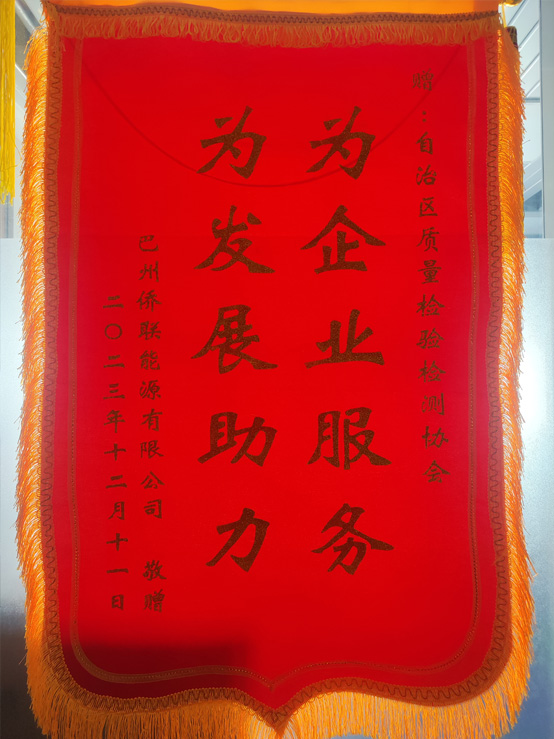 赠：自治区质量检验检测协会
为企业服务
为发展助力
巴州侨联能源有限公司 敬赠
二〇二三年十二月十一日